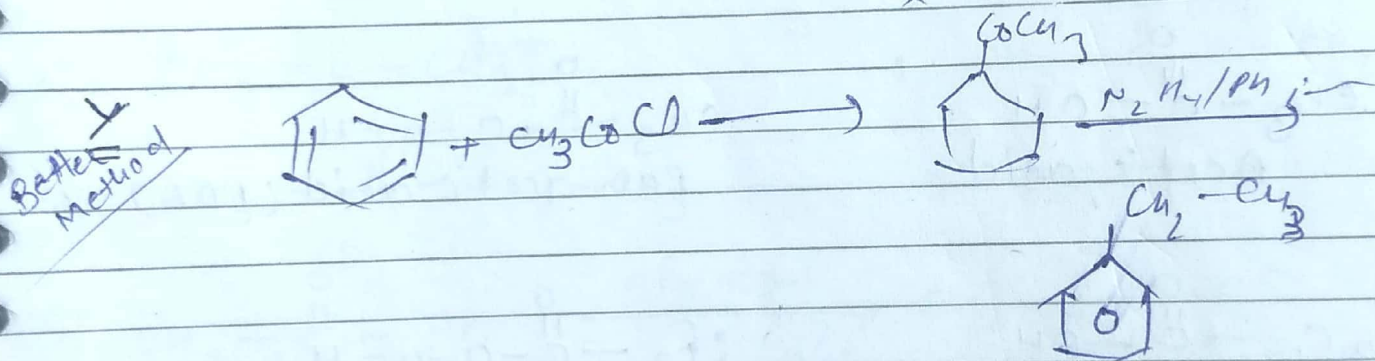 Y
Better
Method
+ CH3COCl
COCH3
N2H4/PH
CH2-CH3